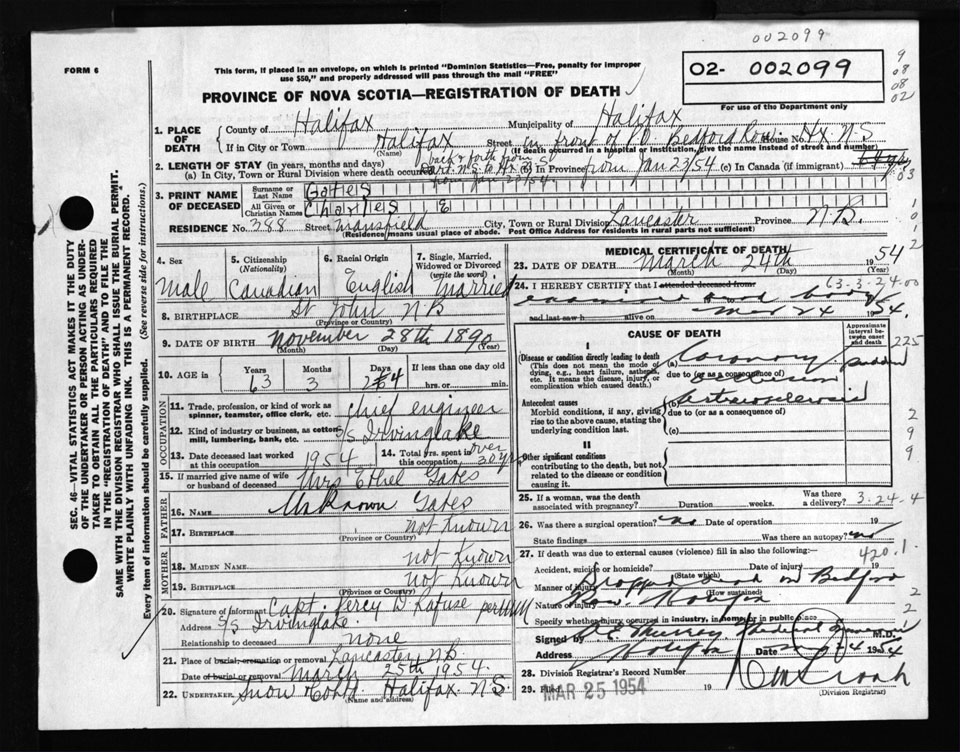 002099
FORM 6
This form, if placed in an envelope, on which is printed "Dominion Statistics—Free, penalty for improper
use $50," and properly addressed will pass through the mail "FREE"
O2- 002099
For use of the Department only
PROVINCE OF NOVA SCOTIA—REGISTRATION OF DEATH
9
08
08
02
1. PLACE OF DEATH
County of Halifax Municipality of Halifax
If in City or Town Halifax Street in front of Bedford Row House No. Hx. N.S
(Name) (If death occurred in a hospital or institution, give the name instead of street and number)
2. LENGTH OF STAY (in years, months and days)
(a) In City, Town or Rural Division where death occurred back & forth from N.S. to Hx N.S from Jan 23/54. (b) In Province from Jan 23/54 (c) In Canada (if immigrant)
03
3. PRINT NAME OF DECEASED
Surname or Last Name Gates
All Given or Christian Names Charles E
RESIDENCE No. 388 Street Mansfield City, Town or Rural Division Lancaster Province N.B.
(Residence means usual place of abode. Post Office Address for residents in rural parts not sufficient)
4. Sex
Male
5. Citizenship
(Nationality)
Canadian
6. Racial Origin
English
7. Single, Married, Widowed or Divorced
(write the word)
Married
8. BIRTHPLACE St John N B
(Province or Country)
9. DATE OF BIRTH November 28th 1890
(Month) (Day) (Year)
10. AGE in Years 63 Months 3 Days If less than one day old hrs. or min.
OCCUPATION
11. Trade, profession, or kind of work as spinner, teamster, office clerk, etc. chief engineer
12. Kind of industry or business, as cotton mill, lumbering, bank, etc. S/S Irvinglake
13. Date deceased last worked at this occupation 1954
14. Total yrs. spent in this occupation over 30 yrs
15. If married give name of wife or husband of deceased Mrs Ethel Gates
FATHER
16. NAME Unknown Gates
17. BIRTHPLACE not known
(Province or Country)
MOTHER
18. MAIDEN NAME not known
19. BIRTHPLACE not known
(Province or Country)
20. Signature of informant Capt. Percy D Rafuse per
Address S/S Irvinglake
Relationship to deceased none
21. Place of burial, cremation or removal Lancaster N.B.
Date of burial or removal March 25th 1954.
22. UNDERTAKER Snow & Co Ltd Halifax N.S.
MEDICAL CERTIFICATE OF DEATH
23. DATE OF DEATH March 24th 1954
(Month) (Day)
24. I HEREBY CERTIFY that I attended deceased from
63-3-24-00
examined dead body
and last saw h alive on Mar 24 1954.
CAUSE OF DEATH
Approximate interval between onset and death
225
I
Disease or condition directly leading to death
(This does not mean the mode of dying, e.g., heart failure, asthenia, etc. It means the disease, injury, or complication which caused death.)
(a) Coronary occlusion sudden
due to (or as a consequence of)
Antecedent causes
Morbid conditions, if any, giving rise to the above cause, stating the underlying condition last.
(b) Arteriosclerosis
due to (or as a consequence of)
(c)
II
Other significant conditions
contributing to the death, but not related to the disease or condition causing it.
2
9
9
25. If a woman, was the death associated with pregnancy? Duration weeks. Was there a delivery?
3-24-4
26. Was there a surgical operation? no Date of operation 19
State findings Was there an autopsy? no
27. If death was due to external causes (violence) fill in also the following:—
420.1
Accident, suicide or homicide? Date of injury 19
(State which)
Manner of injury Dropped dead on Bedford
(How sustained)
Nature of injury Row Halifax
Specify whether injury occurred in industry, in home, or in public place
Signed by Murray Medical Examiner M.D.
Address Halifax Date 1954
28. Division Registrar's Record Number
29. Filed MAR 25 1954 19
(Division Registrar)
SEC. 46—VITAL STATISTICS ACT MAKES IT THE DUTY
OF THE UNDERTAKER OR PERSON ACTING AS UNDER-
TAKER TO OBTAIN ALL THE PARTICULARS REQUIRED
IN THE "REGISTRATION OF DEATH" AND TO FILE THE
SAME WITH THE DIVISION REGISTRAR WHO SHALL ISSUE THE BURIAL PERMIT.
WRITE PLAINLY WITH UNFADING INK. THIS IS A PERMANENT RECORD.
Every item of information should be carefully supplied. (See reverse side for instructions.)